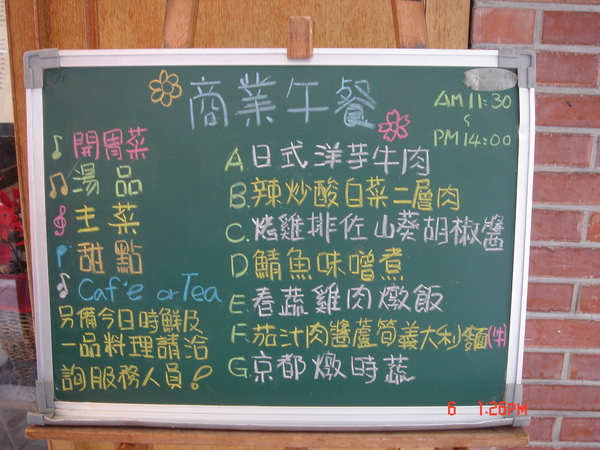 商業午餐
AM 11:30
~
PM 14:00
開胃菜
湯品
主菜
甜點
Caf'e or Tea
另備今日時鮮及
一品料理請洽
詢服務人員!
A.日式洋芋牛肉
B.辣炒酸白菜二層肉
C.烤雞排佐山葵胡椒醬
D.鯖魚味噌煮
E.春蔬雞肉燉飯
F.茄汁肉醬蘆筍義大利麵(牛)
G.京都燉時蔬
6 1:26PM